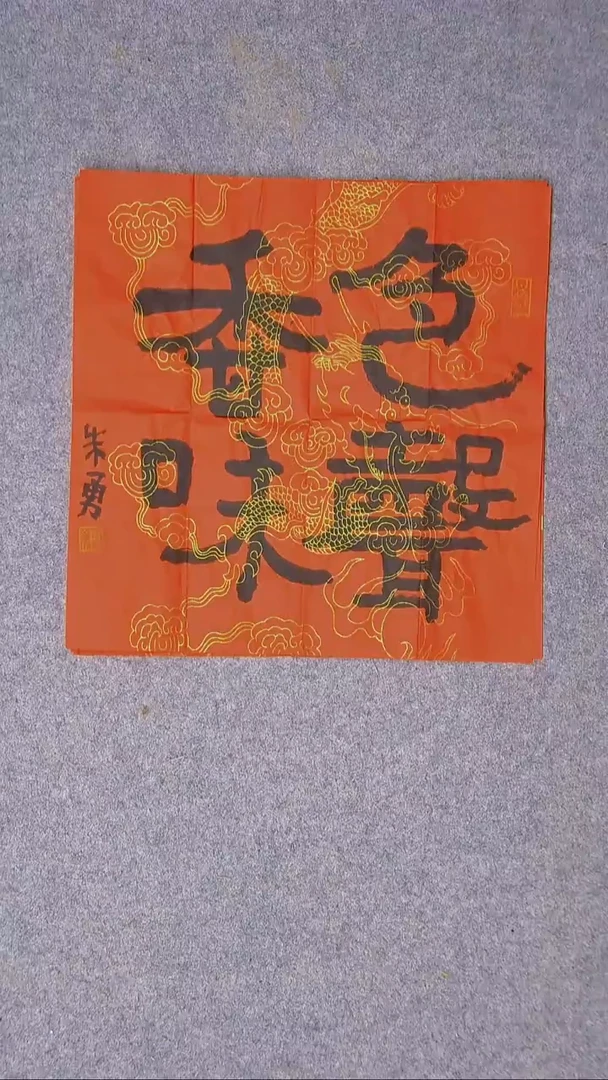 色聲
香味
朱勇